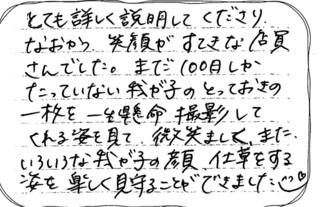 とても詳しく説明してくださり
なおかつ 笑顔がすてきな店員
さんでした。まだ100日しか
たっていない我が子のとっておきの
一枚を一生懸命 撮影して
くれる姿を見て、微笑ましく、また
いろいろな我が子の顔、仕草をする
姿を楽しく見守ることができました